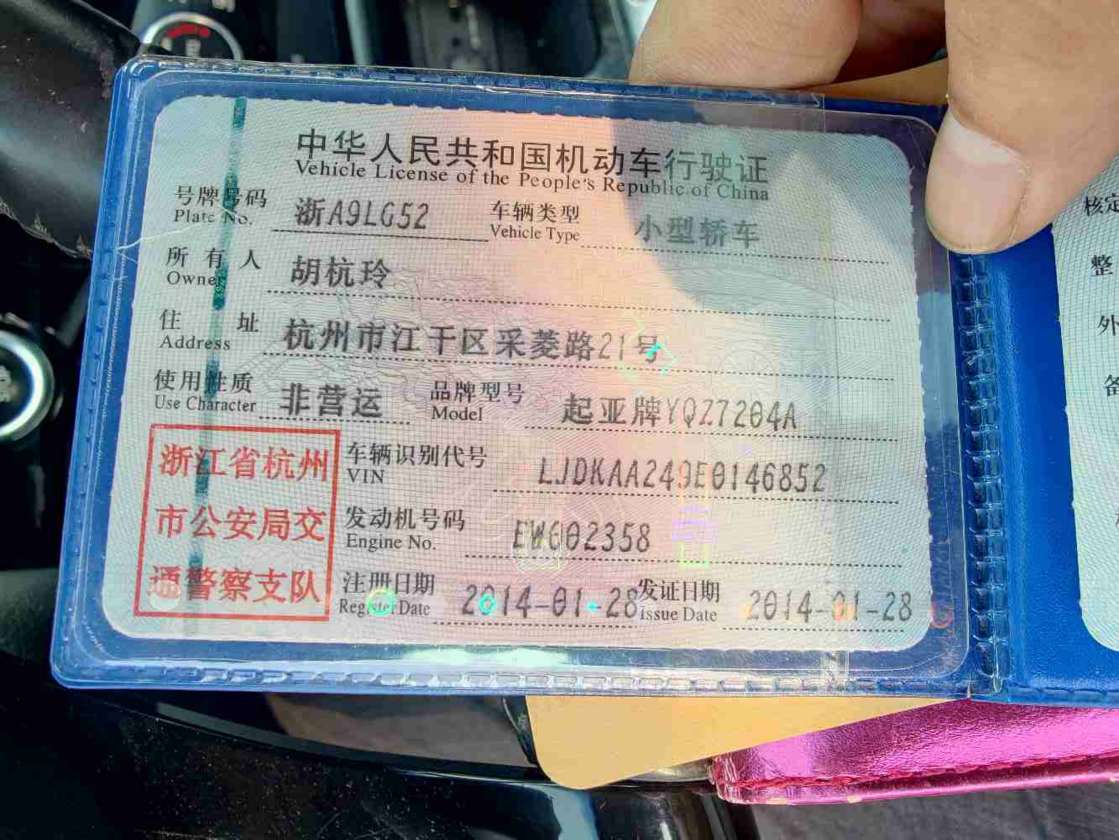 中华人民共和国机动车行驶证
Vehicle License of the People's Republic of China
号牌号码 浙A9LG52 车辆类型 小型轿车
Plate No. Vehicle Type
所有人 胡杭玲
Owner
住址 杭州市江干区采菱路21号
Address
使用性质 非营运 品牌型号 起亚牌YQZ7204A
Use Character Model
浙江省杭州
市公安局交
通警察支队
车辆识别代号 LJDKAA249E0146852
VIN
发动机号码 EW002358
Engine No.
注册日期 2014-01-28 发证日期 2014-01-28
Register Date Issue Date
核定
整
外